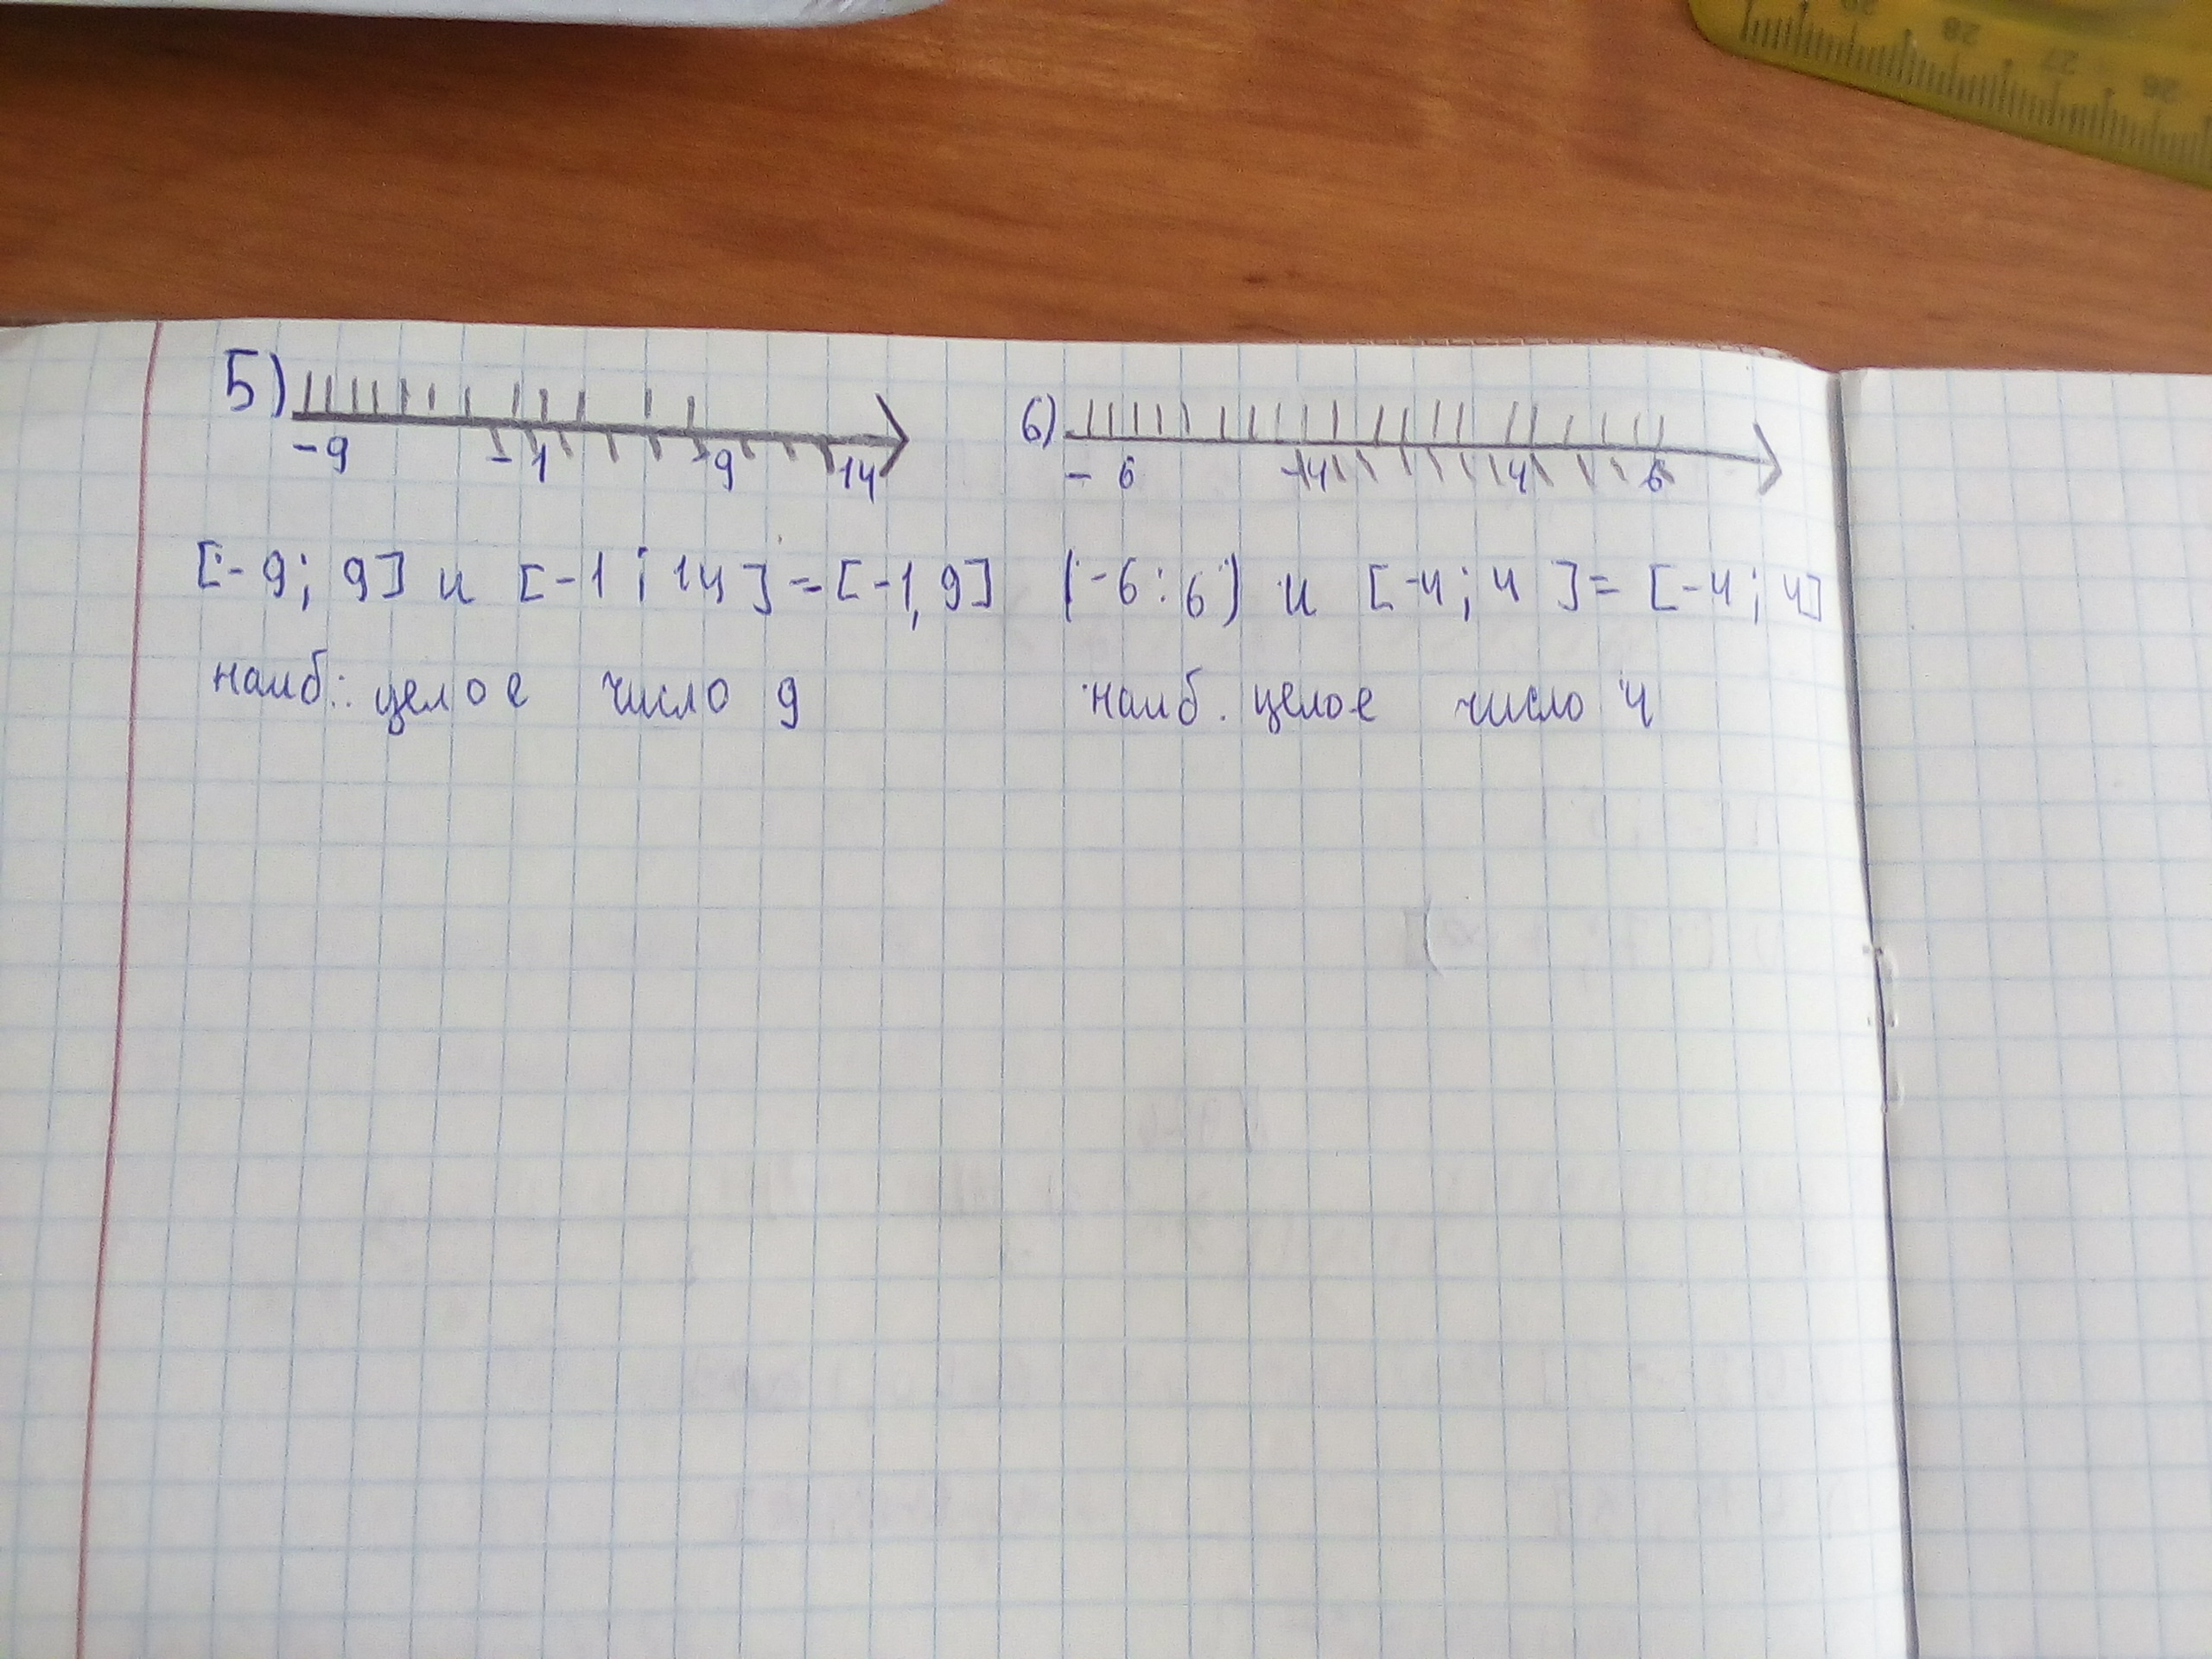 5) -9 -1 9 14
[-9; 9] и [-1; 14] = [-1, 9]
наиб.: целое число 9
6) -6 -4 4 6
(-6:6) и [-4; 4] = [-4; 4]
наиб. целое число 4
29 28 27 26